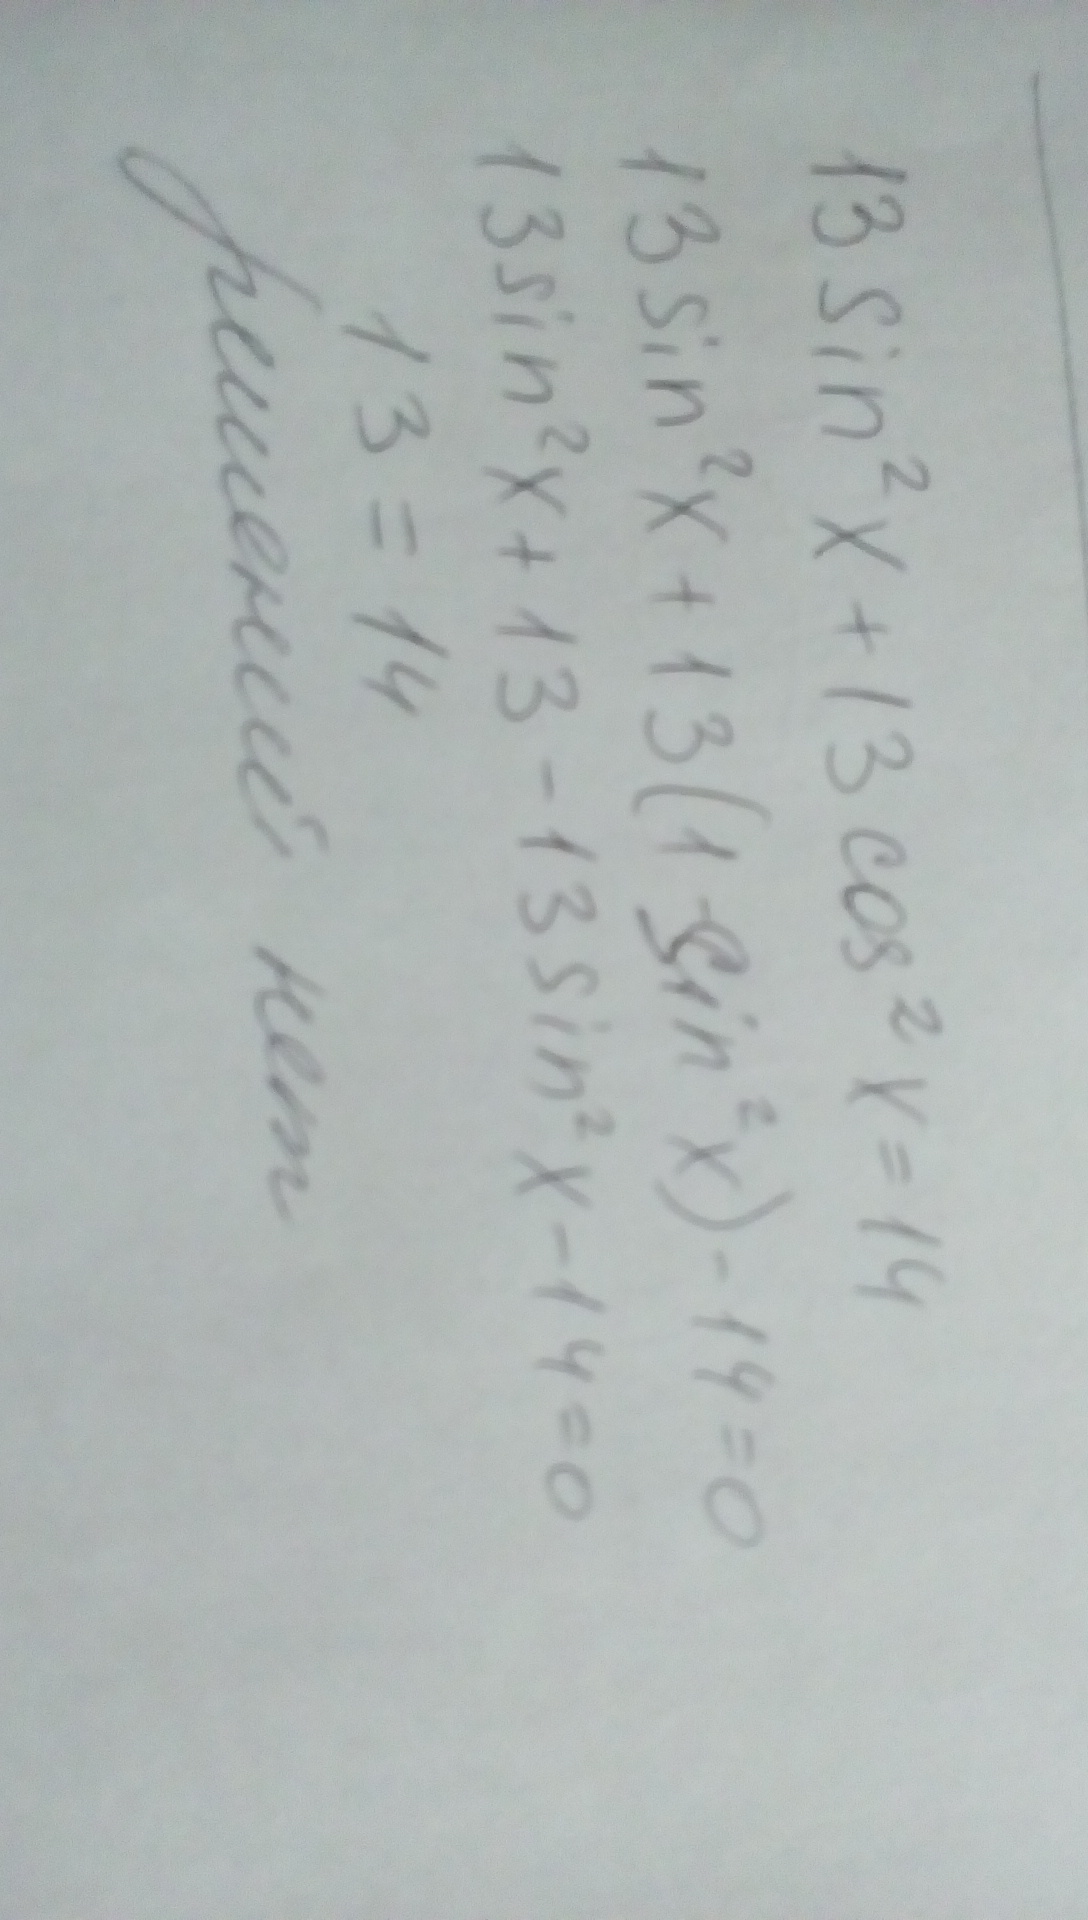 13 sin²x + 13 cos²x = 14
13 sin²x + 13(1 - sin²x) - 14 = 0
13 sin²x + 13 - 13 sin²x - 14 = 0
13 = 14
решений нет